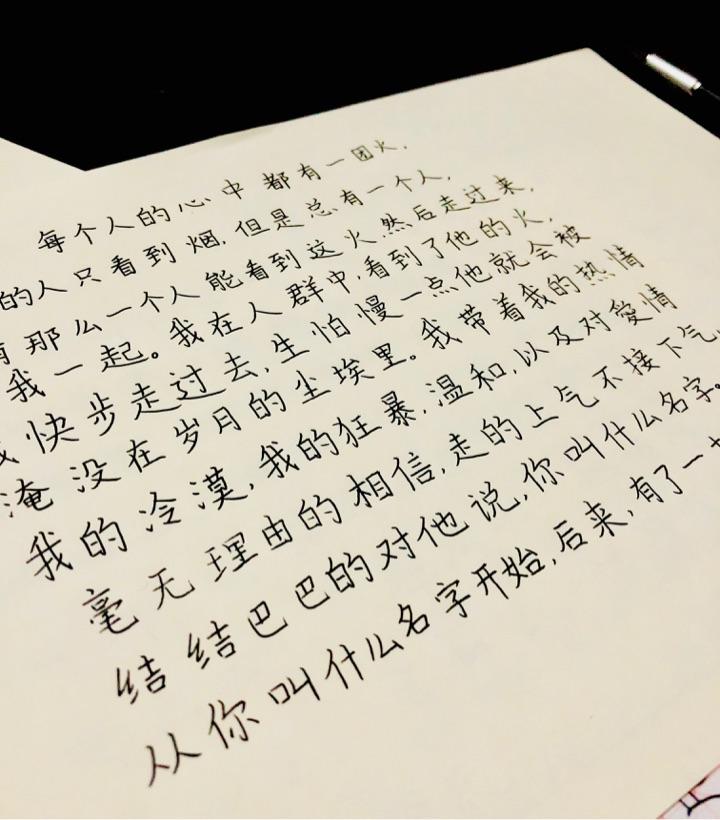 每个人的心中都有一团火,
的人只看到烟,但是总有一个人,
有那么一个人能看到这火,然后走过来,
我一起。我在人群中,看到了他的火,
我快步走过去,生怕慢一点他就会被
淹没在岁月的尘埃里。我带着我的热情
我的冷漠,我的狂暴,温和,以及对爱情
毫无理由的相信,走的上气不接下气。
结结巴巴的对他说,你叫什么名字。
从你叫什么名字开始,后来,有了一